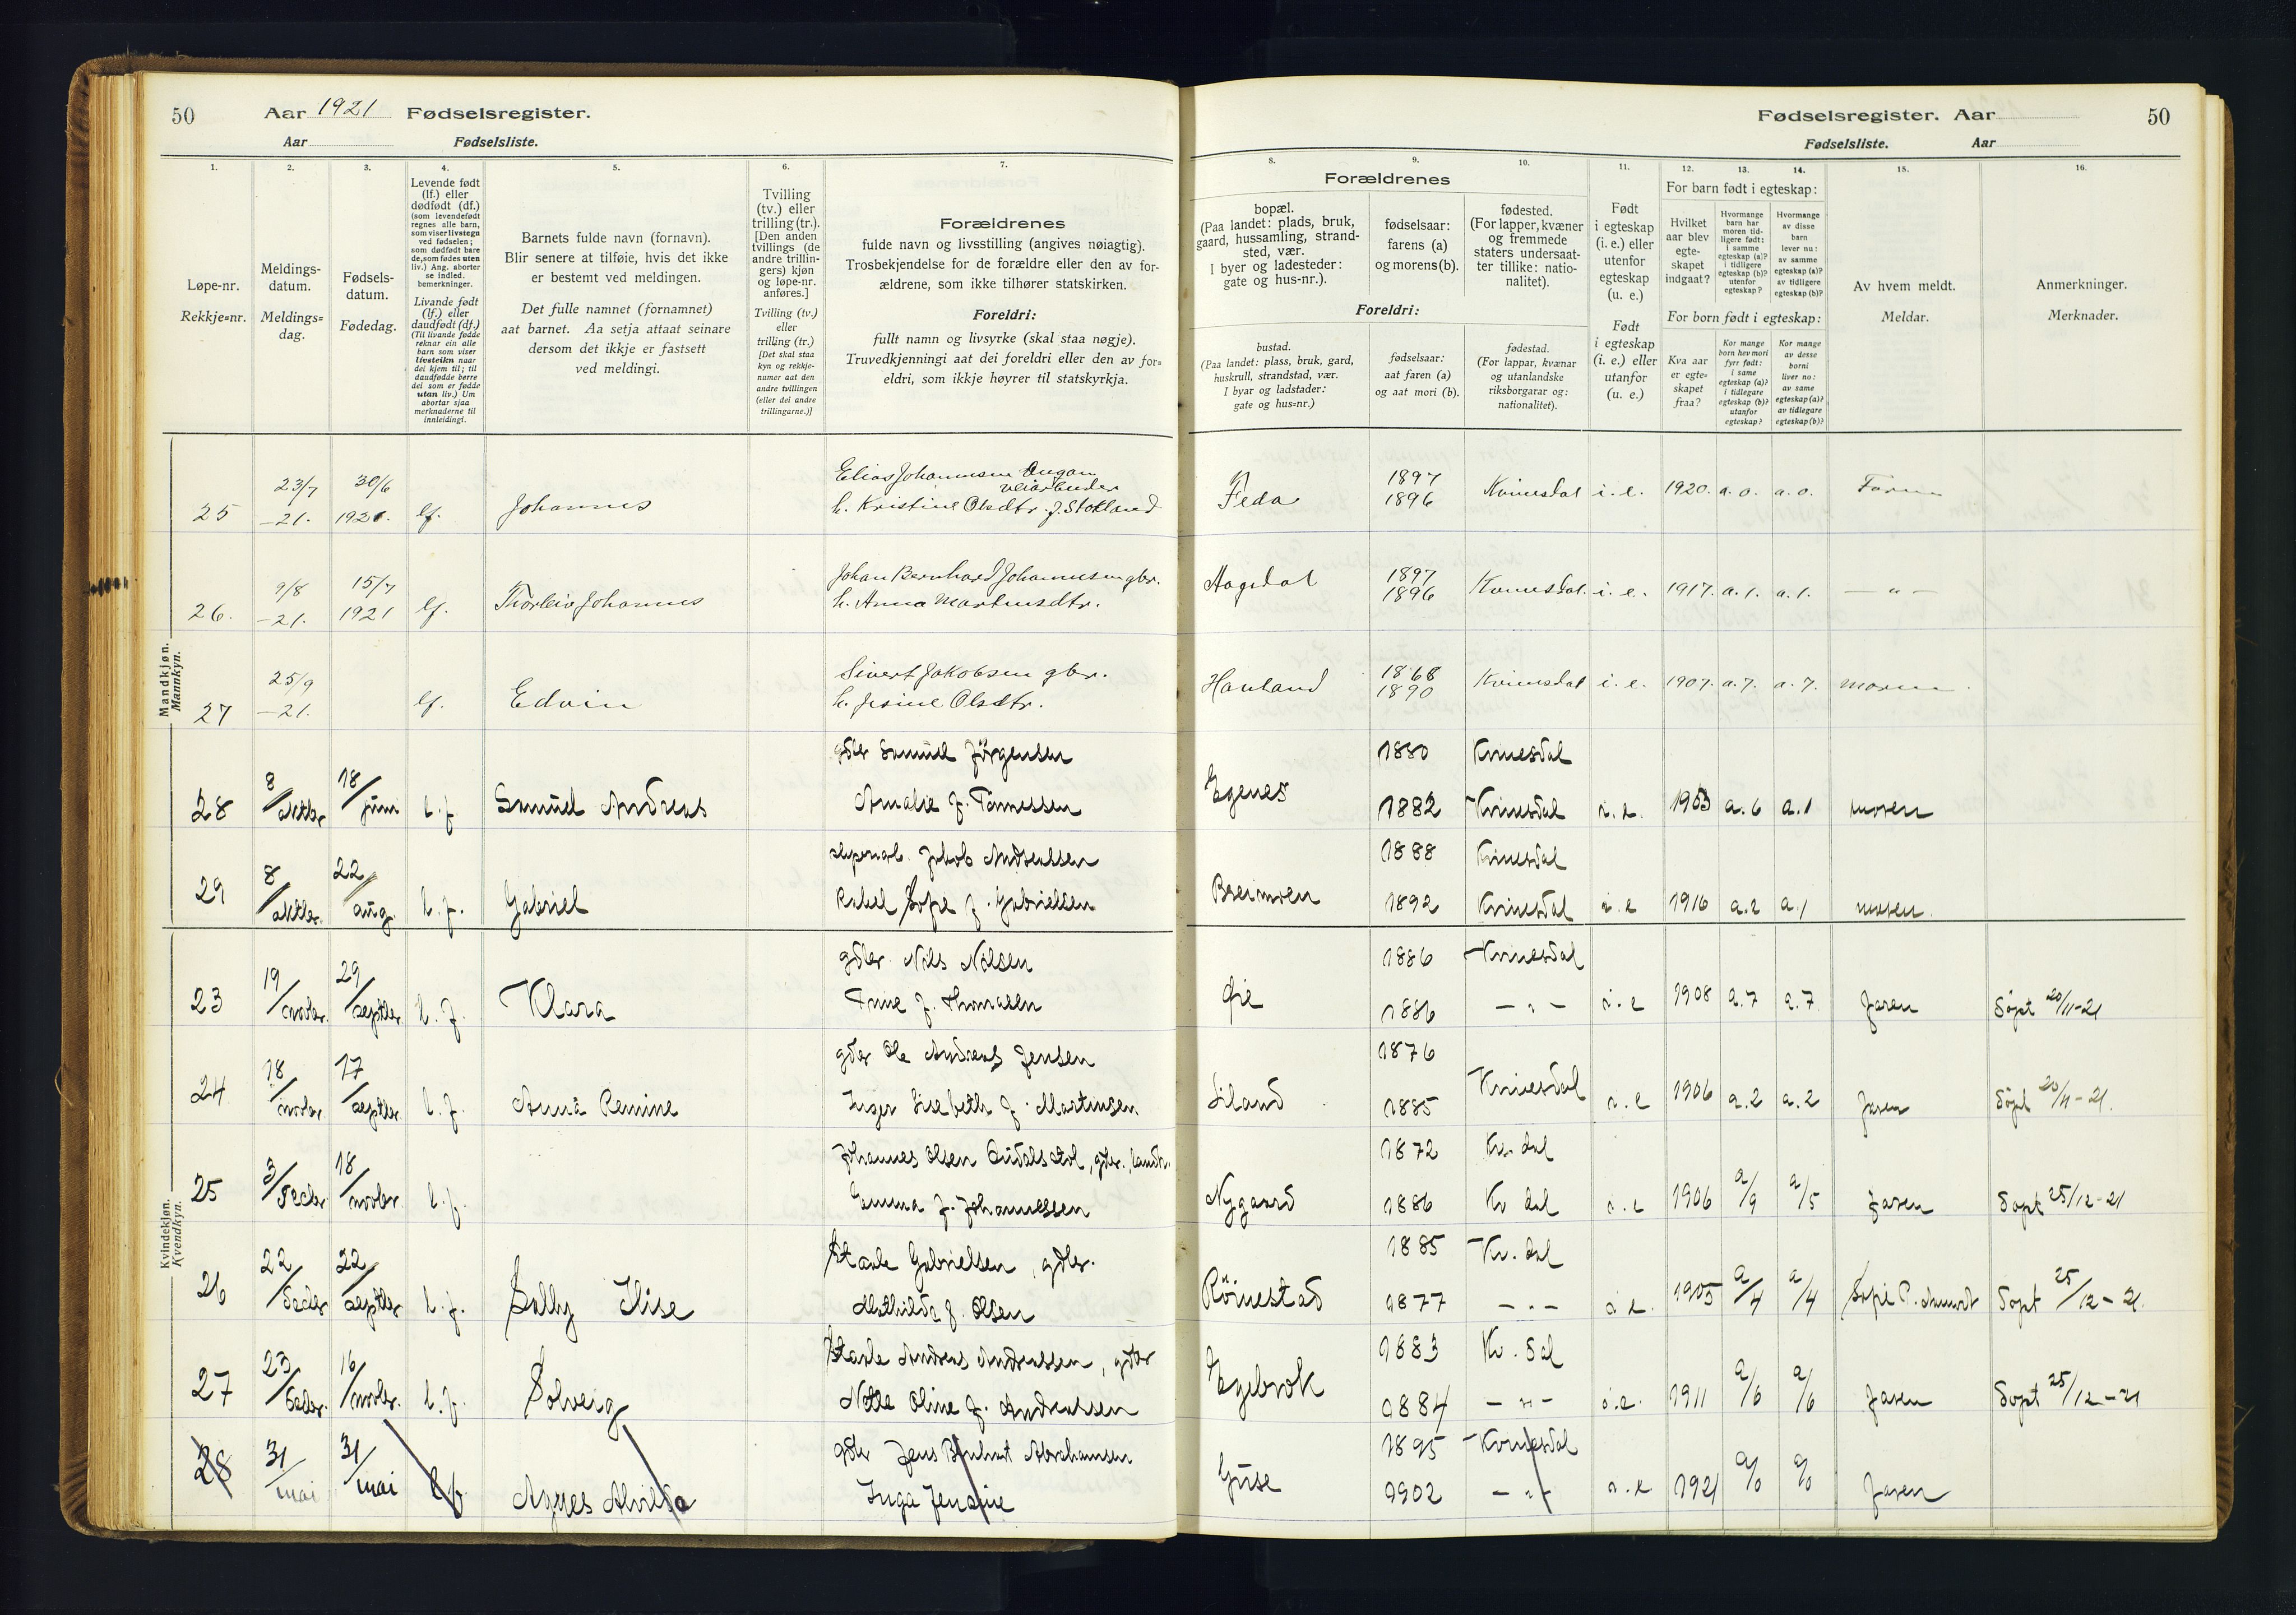 50 Aar 1921 Fødselsregister.
Aar Fødselsliste.
1. 2. 3. 4. 5. 6. 7.
Løpe-nr.
Rekkje=nr.
Meldings-
datum.
Meldings=
dag.
Fødsels-
datum.
Fødedag.
Levende født
(lf.) eller
dødfødt (df.)
(som levendefødt
regnes alle barn,
som viser livstegn
ved fødselen;
som dødfødt bare
de, som fødes uten
liv.) Ang. aborter
se indled.
bemerkninger.
Livande født
(lf.) eller
daudfødt (df.)
(Til livande fødde
reknar ein alle
barn som viser
livsteikn naar
dei kjem til; til
daudfødde berre
dei som er fødde
utan liv.) Um
abortar sjaa
merknaderne til
innleidingi.
Barnets fulde navn (fornavn).
Blir senere at tilføie, hvis det ikke
er bestemt ved meldingen.
Det fulle namnet (fornamnet)
aat barnet. Aa setja attaat seinare
dersom det ikkje er fastsett
ved meldingi.
Tvilling
(tv.) eller
trilling (tr.).
[Den anden
tvillings (de
andre trillin-
gers) kjøn
og løpe-nr.
anføres.]
Tvilling (tv.)
eller
trilling (tr.)
[Det skal staa
kyn og rekkje-
numer aat den
andre tvillingen
(eller dei andre
trillingarne.)]
Forældrenes
fulde navn og livsstilling (angives nøiagtig).
Trosbekjendelse for de forældre eller den av for-
ældrene, som ikke tilhører statskirken.
Foreldri:
fullt namn og livsyrke (skal staa nøgje).
Truvedkjenningi aat dei foreldri eller den av for=
eldri, som ikkje høyrer til statskyrkja.
Mandkjøn.
Mannkyn.
25 23/7 -21. 30/6 1921. lf. Johannes
Elias Johannesen
h. Kristine Olsdtr. f. Stokland
26. 9/8 -21. 15/7 1921 lf. Thorleiv Johannes
Johan Bernhard Johannesen gbr.
h. Anna Martinsdtr.
27 25/9 -21. lf. Edvin
Sivert Jakobsen gbr.
h. Jesine Olsdtr.
28 8/oktbr 18/juni l.f. Samuel Andreas
gdbr Samuel Jörgensen
Amalie f. Tönnessen
29 8/oktbr. 22/aug. l.f. Gabriel
Jakob Andreassen
Rakel Sofie f. Gabrielsen
Kvindekjøn.
Kvendkyn.
23 19/novbr. 29/septbr. l.f. Klara
gdbr. Nils Nilsen
Trine f. Thomasen
24 18/novbr 17/septbr. l.f. Anna Remine
gdbr Ole Andreas Jensen
Inger Lisebeth f. Martinsen
25 3/decbr. 18/novbr l.f.
Johannes Olsen , gdbr.,
Emma f. Johannessen
26 22/decbr 22/septbr l.f. Solly Elise
Gabrielsen, gdbr.
Mathilde f. Olsen
27 23/decbr. 16/novbr. l.f. Solveig
Andreas Andreassen, gdbr
Oline f. Andreassen
28 31/mai 31/mai l.f. Agnes Alvilda
gdbr Jens Bernhart Abrahamsen
Inga Jensine
Fødselsregister. Aar 50
Fødselsliste. Aar
8. 9. 10. 11. 12. 13. 14. 15. 16.
Forældrenes
bopæl.
(Paa landet: plads, bruk,
gaard, hussamling, strand-
sted, vær.
I byer og ladesteder:
gate og hus-nr.).
fødselsaar:
farens (a)
og morens (b).
fødested.
(For lapper, kvæner
og fremmede
staters undersaat-
ter tillike: natio-
nalitet).
Foreldri:
bustad.
(Paa landet: plass, bruk, gard,
huskrull, strandstad, vær.
I byar og ladstader:
gate og hus=nr.)
fødselsaar:
aat faren (a)
og aat mori (b).
fødestad.
(For lappar, kvænar
og utanlandske
riksborgarar og:
nationalitet).
Født
i egteskap
(i. e.) eller
utenfor
egteskap
(u. e.)
Født
i egteskap
(i. e.) eller
utanfor
egteskap
(u. e.)
For barn født i egteskap:
Hvilket
aar blev
egte-
skapet
indgaat?
Hvormange
barn har
moren tid-
ligere født:
i samme
egteskap (a)?
i tidligere
egteskap (b)?
utenfor
egteskap?
Hvormange
av disse
barn
lever nu:
av samme
egteskap (a)?
av tidligere
egteskap (b)?
For born født i egteskap:
Kva aar
er egte=
skapet
fraa?
Kor mange
born hev mori
fyrr født:
i same
egteskap (a)?
i tidlegare
egteskap (b)?
utanfor
egteskap?
Kor mange
av desse
borni
liver no:
av same
egteskap (a)?
av tidlegare
egteskap (b)?
Av hvem meldt.
Meldar.
Anmerkninger.
Merknader.
Feda 1897 1896 Kvinesdal i. e. 1920. a. 0. a. 0. Faren
Aagedal 1897 1896 Kvinesdal. i. e. 1917. a. 1. a. 1. — " —
Hauland 1868 1890 Kvinesdal i. e. 1907. a. 7. a. 7. Moren.
Egenes 1880 Kvinesdal
1882 Kvinesdal i. e. 1903 a. 6 a. 1 moren
Breimoen 1888 Kvinesdal
1892 Kvinesdal i. e 1916 a. 2 a. 1 moren.
Øie 1886 Kvinesdal
1886 — " — i. e 1908 a. 7 a. 7 faren Döpt 20/11-21
Liland 1876 Kvinesdal
1885 i. e 1906 a. 2 a. 2 faren Döpt 20/11-21.
Nygaard 1872 Kv. dal
1886 Kv dal i. e 1906 a/9 a/5 faren Döpt 25/12-21
Rörvestad 1885 Kv. dal
1877 — " — i. e. 1905 a/4 a/4 Sofie P. Döpt 25/12-21.
Egebrok 1883 Kv. dal
1884 — " — i. e. 1911 a/6 a/6 faren Döpt 25/12-21
Gjuse 1895 Kvinesdal
1902 — " — i. e 1921 a/0 a/0 faren